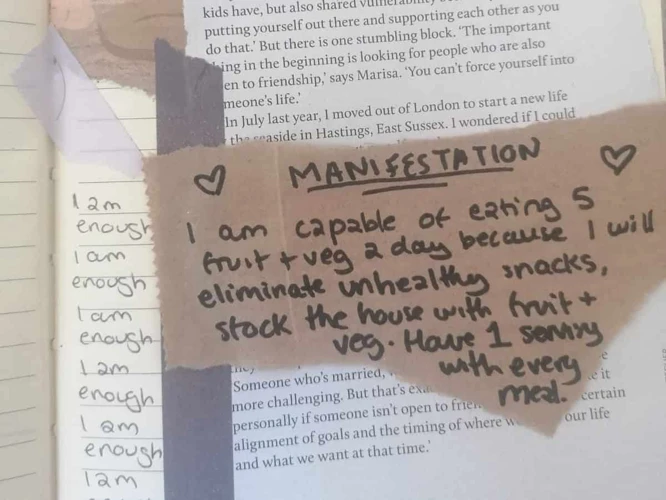 kids have, but also shared
putting yourself out there and supporting each other as you
do that.' But there is one stumbling block. 'The important
in the beginning is looking for people who are also
en to friendship,' says Marisa. 'You can't force yourself into
meone's life.'
In July last year, I moved out of London to start a new life
the seaside in Hastings, East Sussex. I wondered if I could
MANIFESTATION
I am capable of eating 5
fruit + veg a day because I will
eliminate unhealthy snacks,
stock the house with fruit +
veg. Have 1 serving
with every
meal.
I am
enough
I am
enough
I am
enough
I am
enough
I am
enough
I am
Someone who's married,
it
more challenging. But that's
certain
personally if someone isn't open to
our life
alignment of goals and the timing of where
and what we want at that time.'